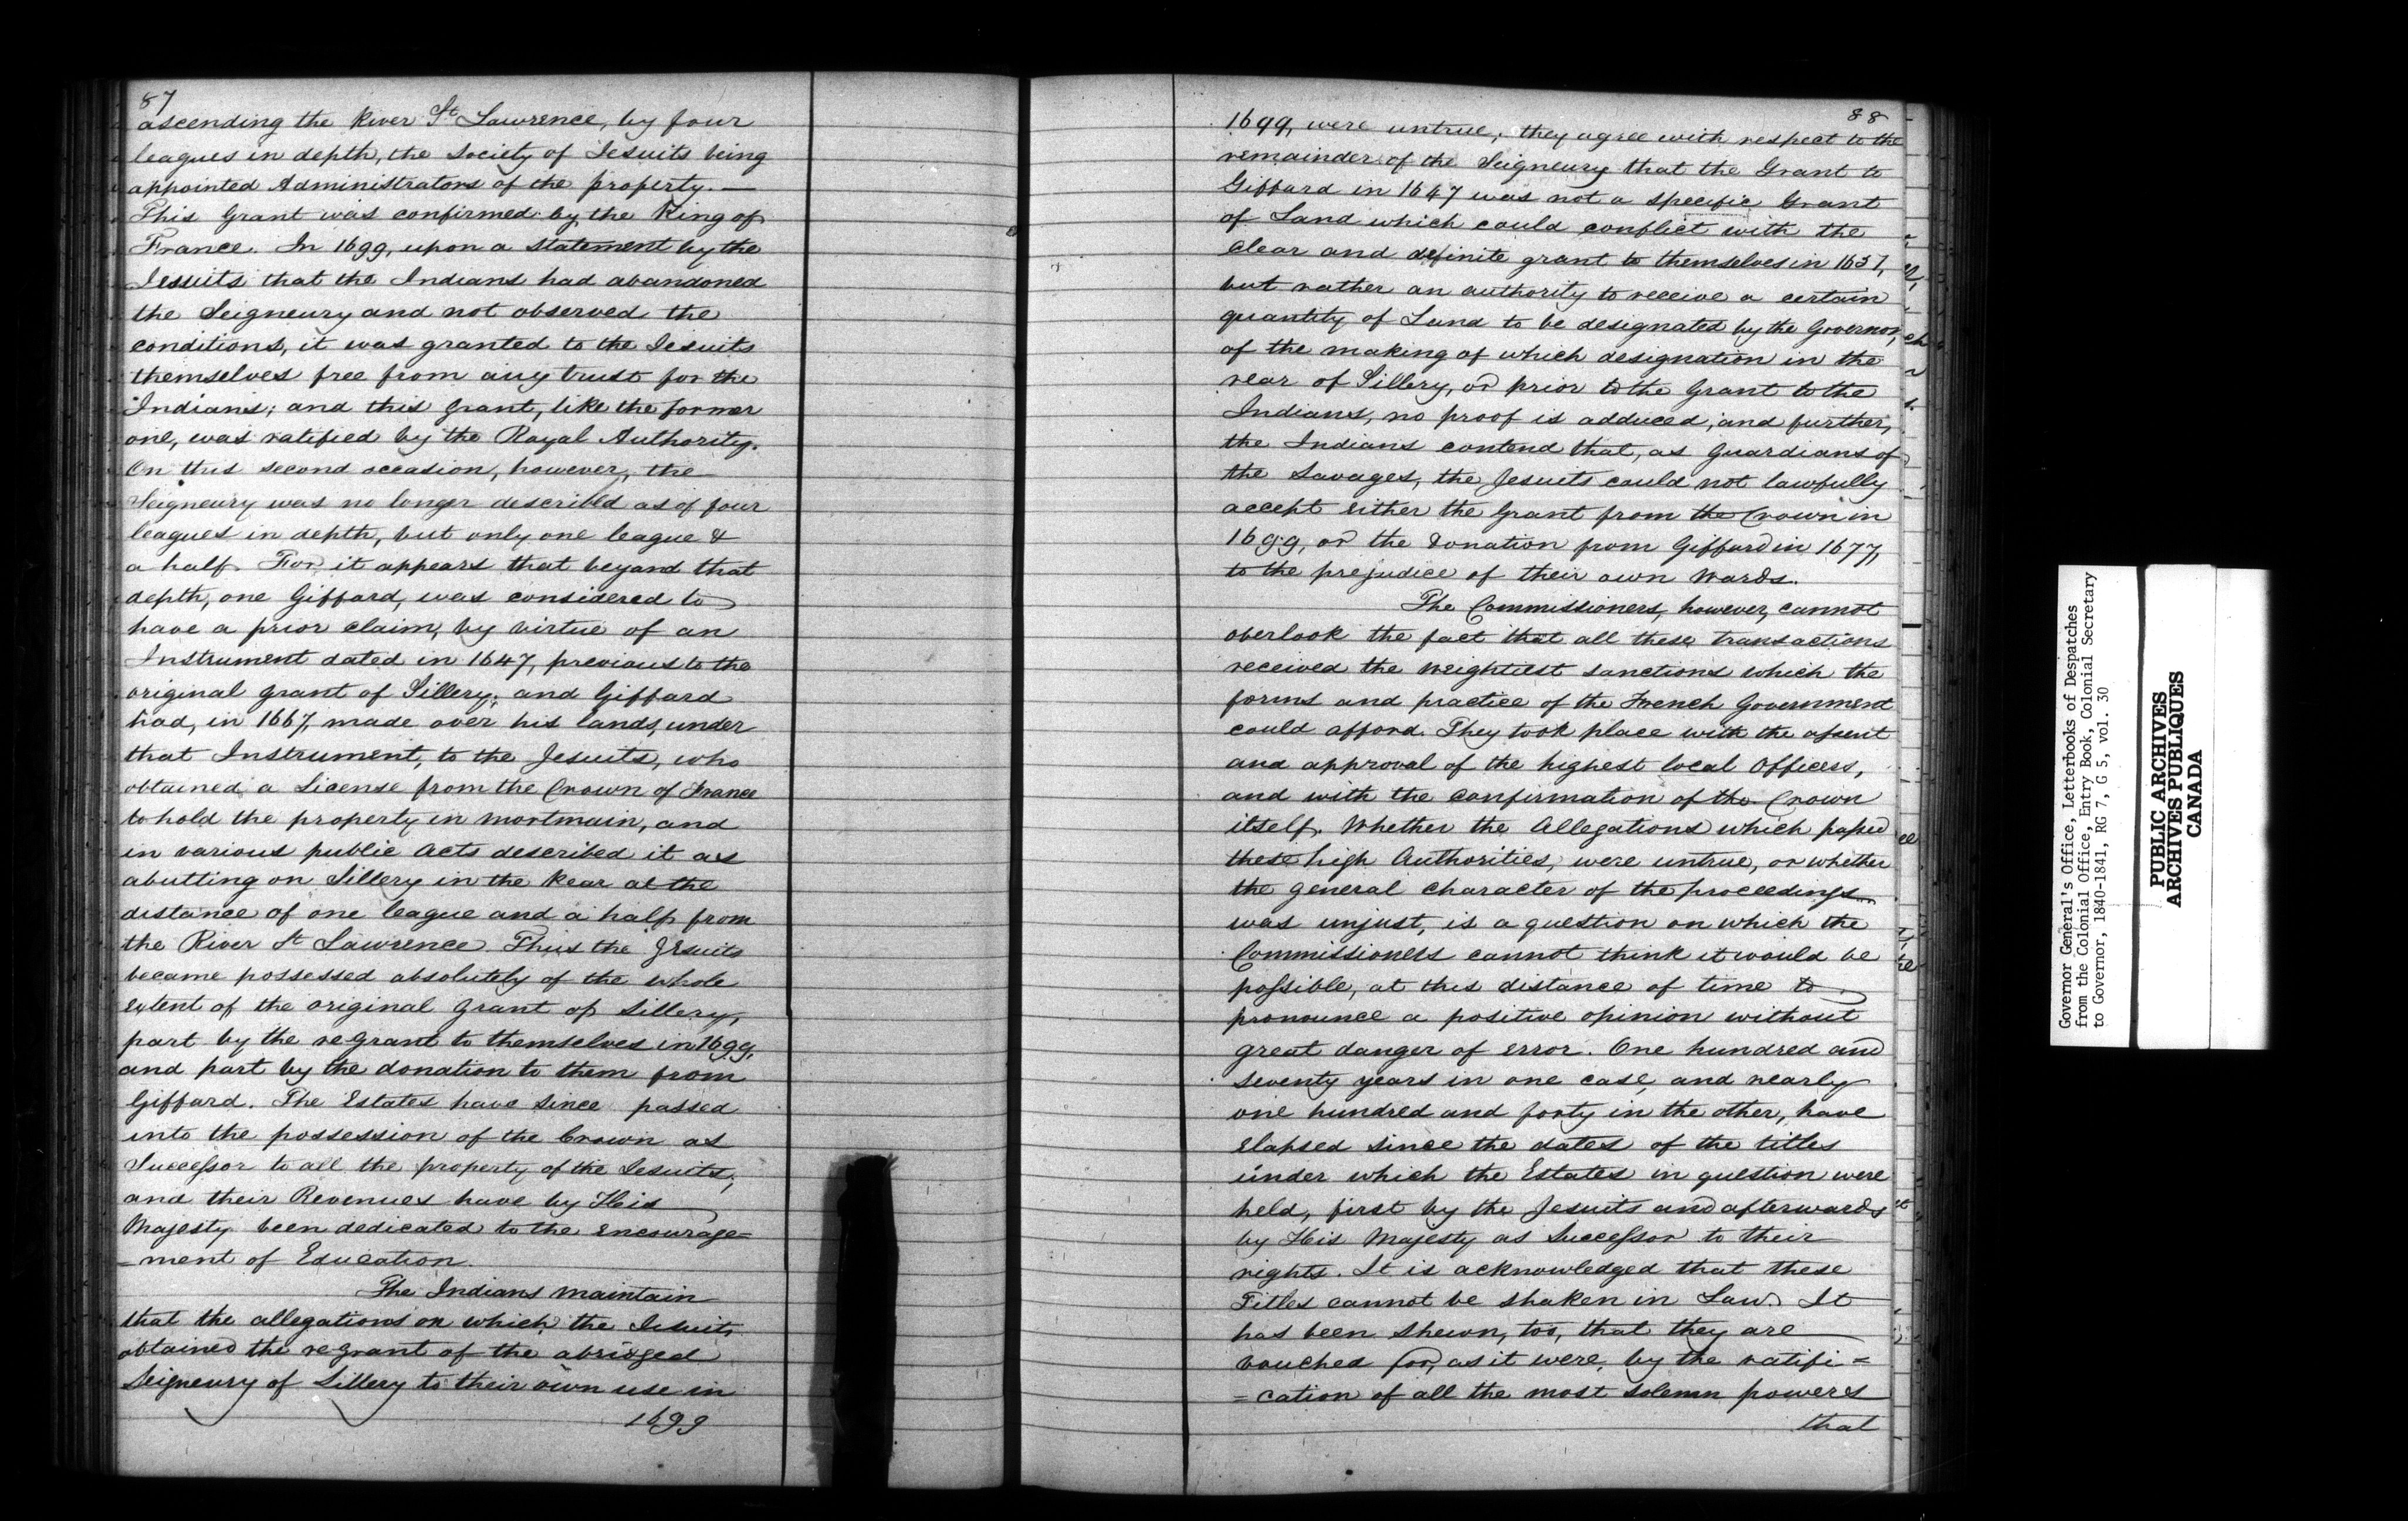 87
ascending the River St. Lawrence, by four
leagues in depth, the Society of Jesuits being
appointed Administrators of the property. —
This Grant was confirmed by the King of
France. In 1699, upon a statement by the
Jesuits that the Indians had abandoned
the Seigneury and not observed the
conditions, it was granted to the Jesuits
themselves free from any trust for the
Indians; and this Grant, like the former
one, was ratified by the Royal Authority.
On this second occasion, however, the
Seigneury was no longer described as of four
leagues in depth, but only one league &
a half. For it appears that beyond that
depth, one Giffard, was considered to
have a prior claim, by virtue of an
Instrument dated in 1647, previous to the
original grant of Sillery; and Giffard
had, in 1667, made over his lands, under
that Instrument, to the Jesuits, who
obtained a License from the Crown of France
to hold the property in mortmain, and
in various public Acts described it as
abutting on Sillery in the Rear at the
distance of one league and a half from
the River St Lawrence. Thus the Jesuits
became possessed absolutely of the whole
extent of the original Grant of Sillery,
part by the re-grant to themselves in 1699,
and part by the donation to them from
Giffard. The Estates have since passed
into the possession of the Crown as
Successor to all the property of the Jesuits;
and their Revenues have by His
Majesty been dedicated to the encourage=
=ment of Education.
The Indians maintain
that the allegations on which the Jesuits
obtained the re-grant of the abridged
Seigneury of Sillery to their own use in
1699
88
1699, were untrue; they agree with respect to the
remainder of the Seigneury that the Grant to
Giffard in 1647 was not a specific Grant
of Land which could conflict with the
clear and definite grant to themselves in 1651,
but rather an authority to receive a certain
quantity of Land to be designated by the Governor,
of the making of which designation in the
rear of Sillery, or prior to the Grant to the
Indians, no proof is adduced; and further,
the Indians contend that, as Guardians of
the Savages, the Jesuits could not lawfully
accept either the Grant from the Crown in
1699, or the Donation from Giffard in 1677,
to the prejudice of their own Wards.
The Commissioners, however, cannot
overlook the fact that all these transactions
received the weightiest sanctions which the
forms and practice of the French Government
could afford. They took place with the assent
and approval of the highest local Officers,
and with the confirmation of the Crown
itself. Whether the Allegations which passed
these high Authorities, were untrue, or whether
the general character of the proceedings
was unjust, is a question on which the
Commissioners cannot think it would be
possible, at this distance of time to
pronounce a positive opinion without
great danger of error. One hundred and
seventy years in one case, and nearly
one hundred and forty in the other, have
elapsed since the dates of the titles
under which the Estates in question were
held, first by the Jesuits and afterwards
by His Majesty as Successor to their
rights. It is acknowledged that these
Titles cannot be shaken in Law. It
has been shewn, too, that they are
vouched for, as it were, by the ratifi=
=cation of all the most solemn powers
that
Governor General's Office, Letterbooks of Despatches
from the Colonial Office, Entry Book, Colonial Secretary
to Governor, 1840-1841, RG 7, G 5, vol. 30
PUBLIC ARCHIVES
ARCHIVES PUBLIQUES
CANADA